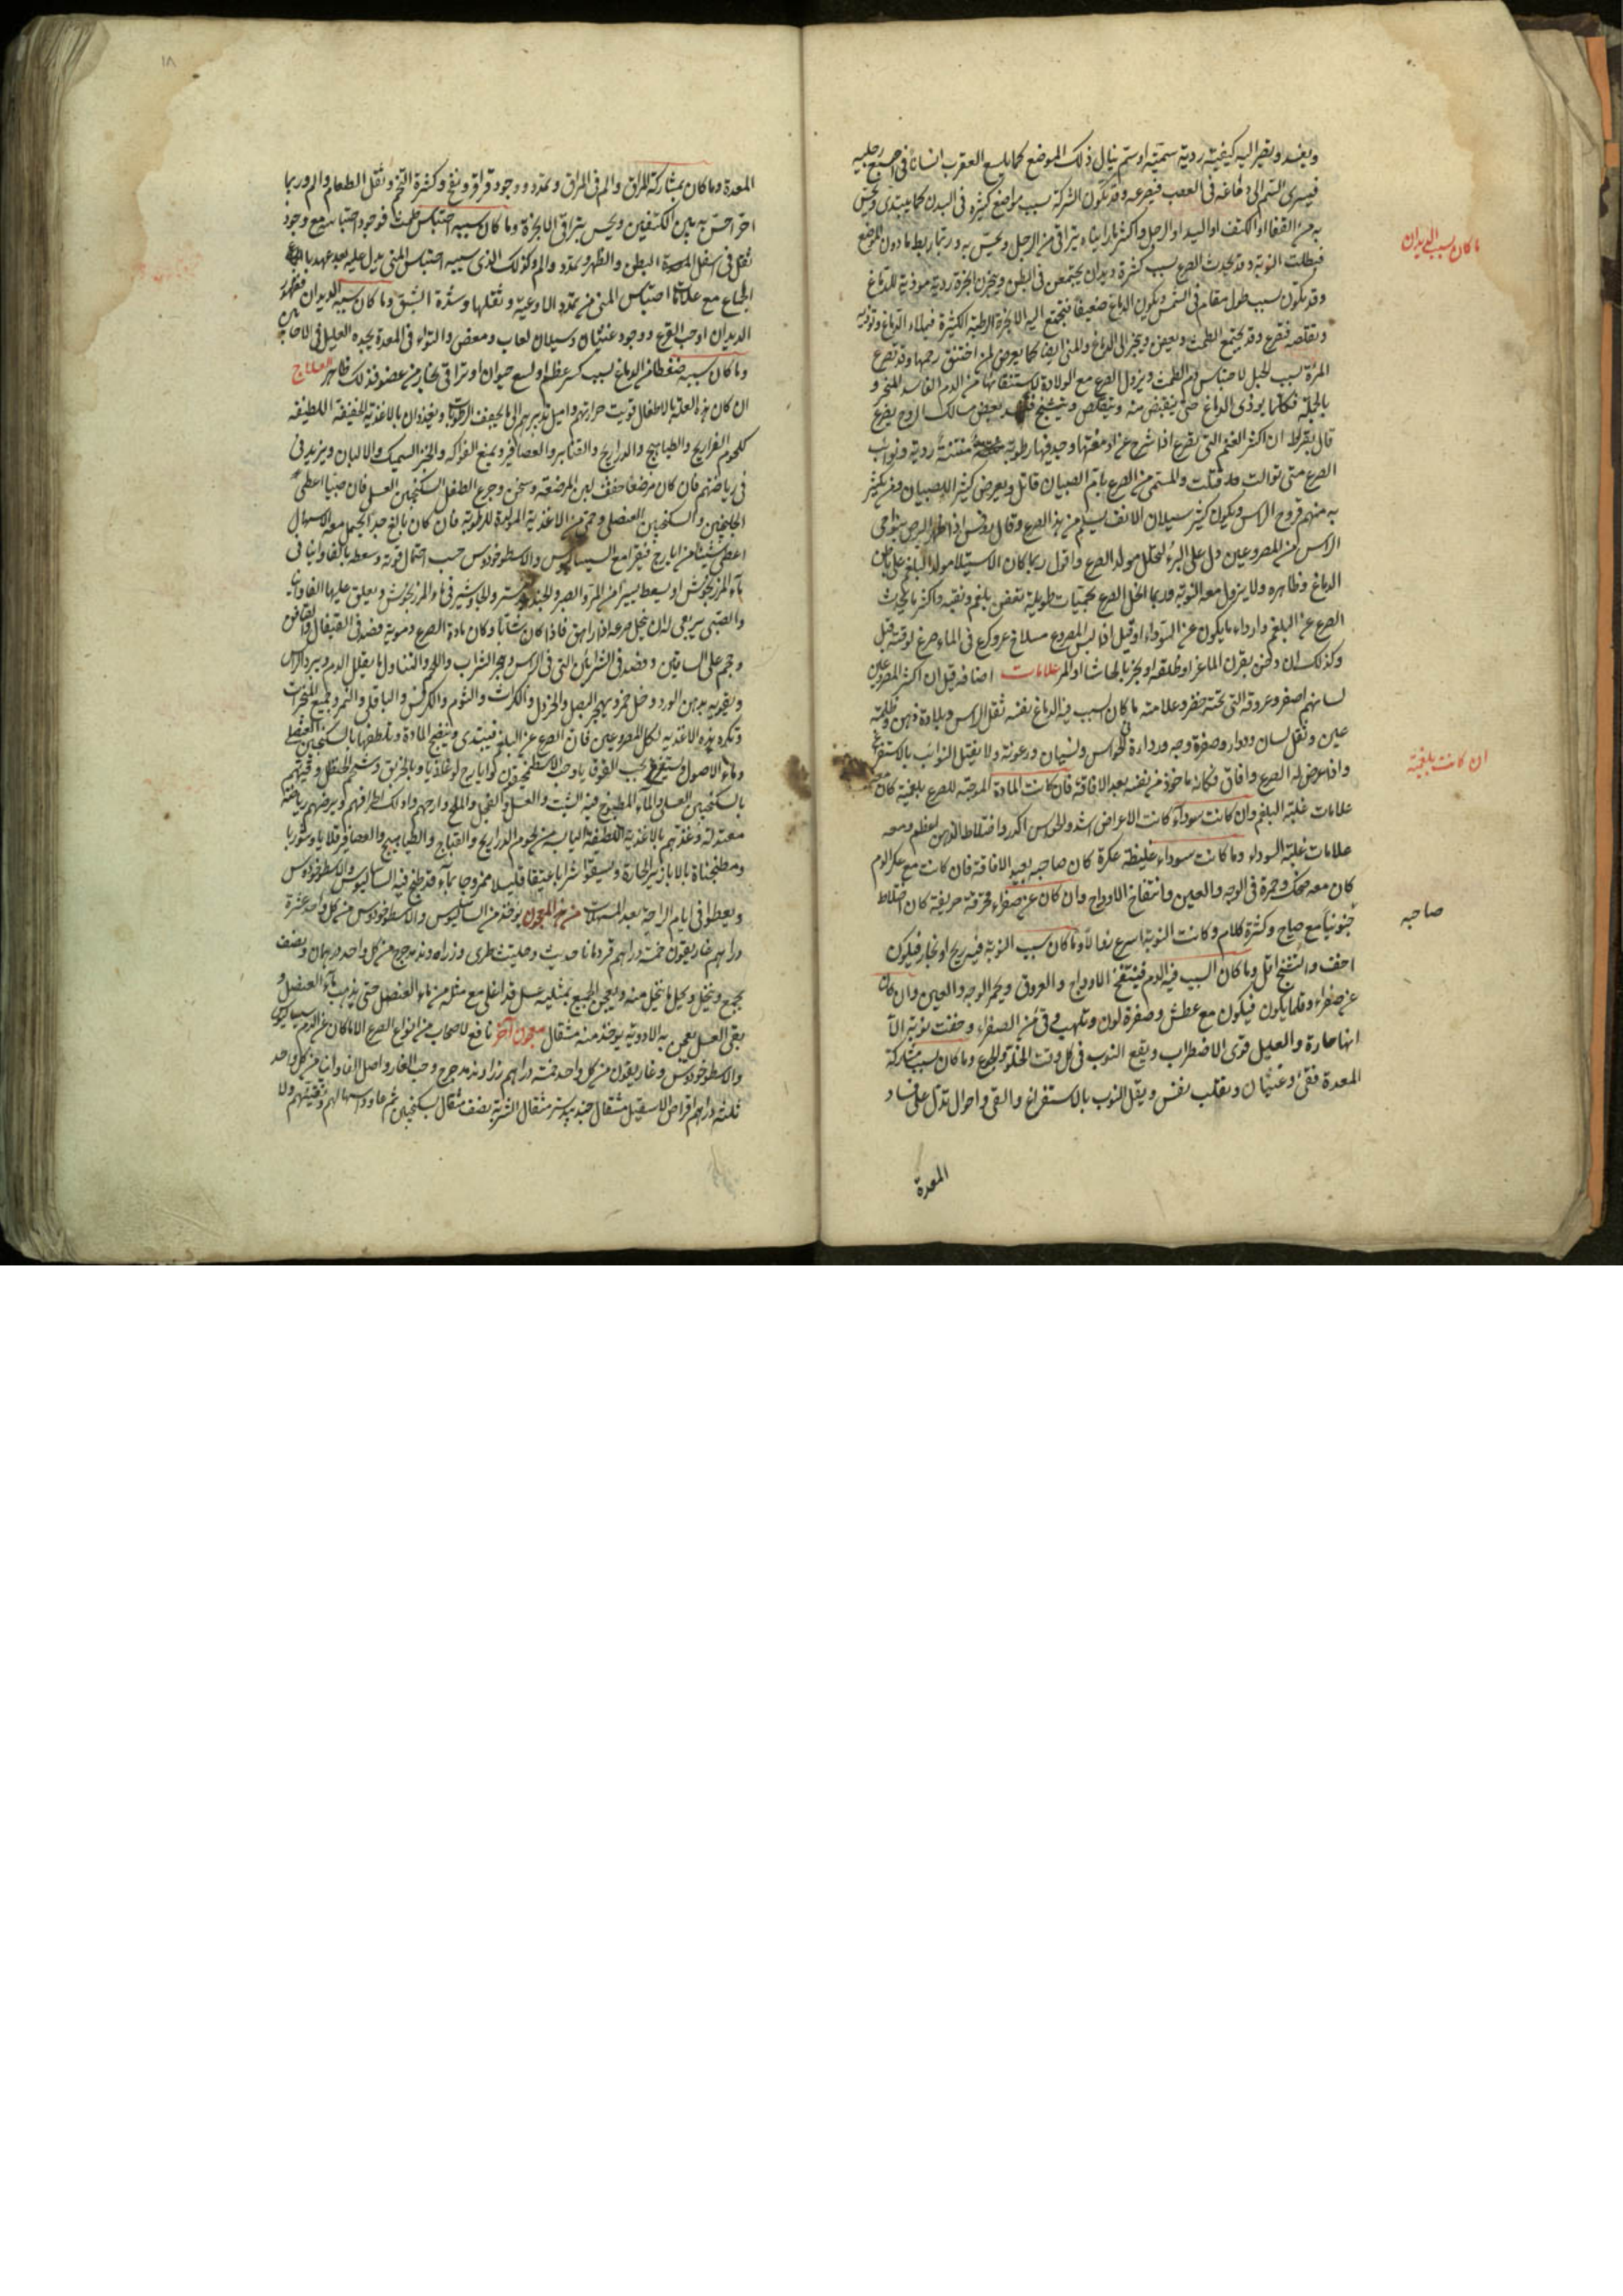 ويفسد ويصير اليه كيفية ردية سمية او سم ينال ذلك الموضع كما يلسع العقرب انسانا في اصبع رجليه
فيسرى السم الى دماغه في العصب فيصرعه وقد تكون الشركة بسبب مواضع كثيرة في البدن كما يبتدى ويحس
به من القفا او الكتف او اليد او الرجل واكثر ما رايناه يتراقى من الرجل ويحس به وربما ربط ما دون الموضع
فبطلت النوبة وقد يحدث الصرع بسبب كثرة ديدان يجتمعن في البطن ويبخرن ابخرة ردية موذية للدماغ
ما كان بسبب الديدان
وقد يكون بسبب طول مقام في الشمس ويكون الدماغ ضعيفا فيجتمع اليه الابخرة الرطبة الكثيرة فيملاء الدماغ وتوذيه
وتقلصه فتصرع وقد يجتمع الطمث ويعفن ويبخر الى الدماغ والمنى ايضا كما يعرض لمن اختنق رحمها وقد تصرع
المرءة بسبب الحبل لاحتباس دم الطمث ويزول الصرع مع الولادة لاستنقائها من الدم الفاسد المبخر و
بالجملة فكلما يوذى الدماغ حتى ينقبض منه ويتقلص ويتشنج بعض مسالك الروح يصرع
قال بقراط ان اكثر الغنم التى تصرع اذا شرح عن ادمغتها وجد فيها رطوبة منتنة ردية ونوايب
الصرع متى توالت قتلت والمسمى من الصرع بام الصبيان قاتل ويعرض كثيرا للصبيان ومن يكثر
به منهم قروح الراس ويكون كثير سيلان الانف يسلم من هذا الصرع وقال روفس اذا ظهر البرص بنواحى
الراس من المصروعين دل على البرء لتحلل مولد الصرع واقول ربما كان الاستيلا مولد البلغم على باطن
الدماغ وظاهره ولا يزول معه النوبة وربما انحل الصرع بحميات طويلة تعفن بلغم ونقيه واكثر ما يحدث
الصرع عن البلغم واردآه ما يكون عن السوداء وقيل اذا لبس المصروع مسلاخ عنز وكرع في الماء صرع لوقته قبل
وكذلك ان دخن بقرن الماعز او ظلفه او بخر بالحاشا او المر علامات اصنافه قيل ان اكثر المصروعين
لسانهم اصفر وعروقه التى تحته خضر وعلامته ما كان السبب فيه الدماغ نفسه ثقل الراس وبلادة ذهن وظلمة
عين وثقل لسان ودوار وصفرة وجه ورداءة في الحواس ونسيان ورعونة ولا يقبل النوائب بالاستفراغ
واذا عرض له الصرع وافاق فكانه ماخوذ من نفسه بعد الافاقة فان كانت المادة الموجبة للصرع بلغمية كان معه
ان كانت بلغمية
علامات غلبة البلغم وان كانت سوداء كانت الاعراض اشد والحواس اكدر واختلاط الذهن اعظم ومعه
علامات غلبة السوداء وما كانت سوداء غليظة عكرة كان صاحبه بعيد الافاقة فان كانت مع عكر الدم
كان معه ضحك وحمرة في الوجه والعين وانتفاخ الاوداج وان كان عن صفراء محرقة حريفة كان اختلاط
صاحبه
جنونيا مع صياح وكثرة كلام وكانت النوبة اسرع زوالا وما كان سبب النوبة فيه ريح او بخار فيكون
اخف والتشنج اقل وما كان السبب فيه الدم فينتفخ الاوداج والعروق ويحمر الوجه والعين وان كان
عن صفراء وقلما يكون فيكون مع عطش وصفرة لون وتلهب وقئ من الصفراء وخفت نوبته الا
انها حارة والعليل قوى الاضطراب ويقع النوب في كل وقت الخلو والجوع وما كان بسبب مشاركة
المعدة فقئ وغثيان وتقلب نفس ويقل النوب بالاستفراغ والقئ واحوال تدل على فساد
المعدة
١٨
المعدة وما كان بمشاركة المراق والم في المراق وتمدد ووجود قراقر ونفخ وكثرة التخم وثقل الطعام والم وربما
احتراحس به بين الكتفين ويحس بتراقى الابخرة وما كان سببه احتباس طمث فوجود احتباسه مع وجود
ثقل في اسفل البطن والظهر وتمدد والم وكذلك الذى سببه احتباس المنى يدل عليه بعد عهد بالجماع
الجماع مع علامات احتباس المنى من تمدد الاوعية وثقلها وشدة الشبق وما كان سببه الديدان فظهور
الديدان او حب القرع ووجود غثيان وسيلان لعاب ومغص والتواء في المعدة يجده العليل في الاحايين
وما كان سببه ضغطا من الدماغ بسبب كسر عظم او لسع حيوان او تراقى بخار من عضو فذلك ظاهر العلاج
ان كان هذه العلة بالاطفال قويت حرارتهم واميل تدبيرهم الى ما يجفف الرطوبات ويغذوان بالاغذية الخفيفة اللطيفة
كلحوم الفراريج والطياهيج والدراريج والقنابر والعصافير ويمنع الفواكه والخبز السميك والالبان ويزيد في
في رياضتهم فان كان مرضعا خفف لبن المرضعة وسخن وجرع الطفل السكنجبين العسلى فان صبيا اعطى
الجلنجبين والسكنجبين العنصلى وحمى من الاغذية المولدة للرطوبة فان كان بالغ حد يحتمل معه الاسهال
اعطى شيئا من ايارج فيقرا مع السيساليوس والاسطوخودوس حسب احتمال قوته وسعط بالفاوانيا في
مآء المرزنجوش او يسعط بيسير من المر والصبر والجندبيدستر والجاوشير في ماء المرزنجوش ويعلق عليها الفاوانيا
والصبى يرجى لان ينحل صرعه اذا راهق فاذا كان شابا وكان مادة الصرع دموية فصد في القيفال والصافن
وحجم على الساقين وفصد في الشرائين التى في الراس وهجر الشراب واللحم والتناول ما يقلل الدم ويبرد الراس
ويقويه بدهن الورد وخل خمر ويهجر البصل والخردل والكراث والثوم والكرفس والباقلى والتمر وجميع المبخرات
وتكره هذه الاغذية لكل المصروعين فان الصرع عن البلغم فيبتدى وينضج المادة وتلطفها بالسكنجبين العنصلى
وماء الاصول ويستفرغ بحب القوقايا وحب الاسطمخيقون او ايارج لوغاذيا وبالخربق وشحم الحنظل وقيئهم
بالسكنجبين العسلى والمآء المطبوخ فيه الشبت والعسل والفجل والملح وارحهم وادلك اطرافهم ويرضهم رياضة
معتدلة وغذهم بالاغذية اللطيفة اليابسة من لحوم الدراريج والقباج والطياهيج والعصافير قلايا وشوربا
ومطجنات بالابازير الحارة ويسقوا شرابا عتيقا قليلا ممزوجا بمآء قد طبخ فيه الساليوس والاسطوخودوس
ويعطوا في ايام الراحة بعد المسهلات من هذا المعجون يوخذ من الساليوس والاسطوخودوس من كل واحد عشرة
دراهم غاريقون خمسة دراهم قردمانا حديث وحلتيت طرى وزراوند مدحرج من كل واحد درهمان ونصف
يجمع وينخل وكيل ما ينخل منه ويعجن الجميع بمثليه عسل قد اغلى مع مثله من ماء العنصل حتى يذهب مآء العنصل و
يبقى العسل يعجن به الادوية يوخذ منه مثقال معجون آخر نافع لاصحاب من انواع الصرع الا ما كان عن الدم سيساليوس
والاسطوخودوس وغاريقون من كل واحد خمسة دراهم زراوند مدحرج وحب الغار واصل الفاوانيا من كل واحد
ثلثة دراهم اقراص الاسقيل مثقال جندبيدستر مثقال الشربة نصف مثقال بسكنجبين ثم عاود اسهالهم وتقيئهم ولا